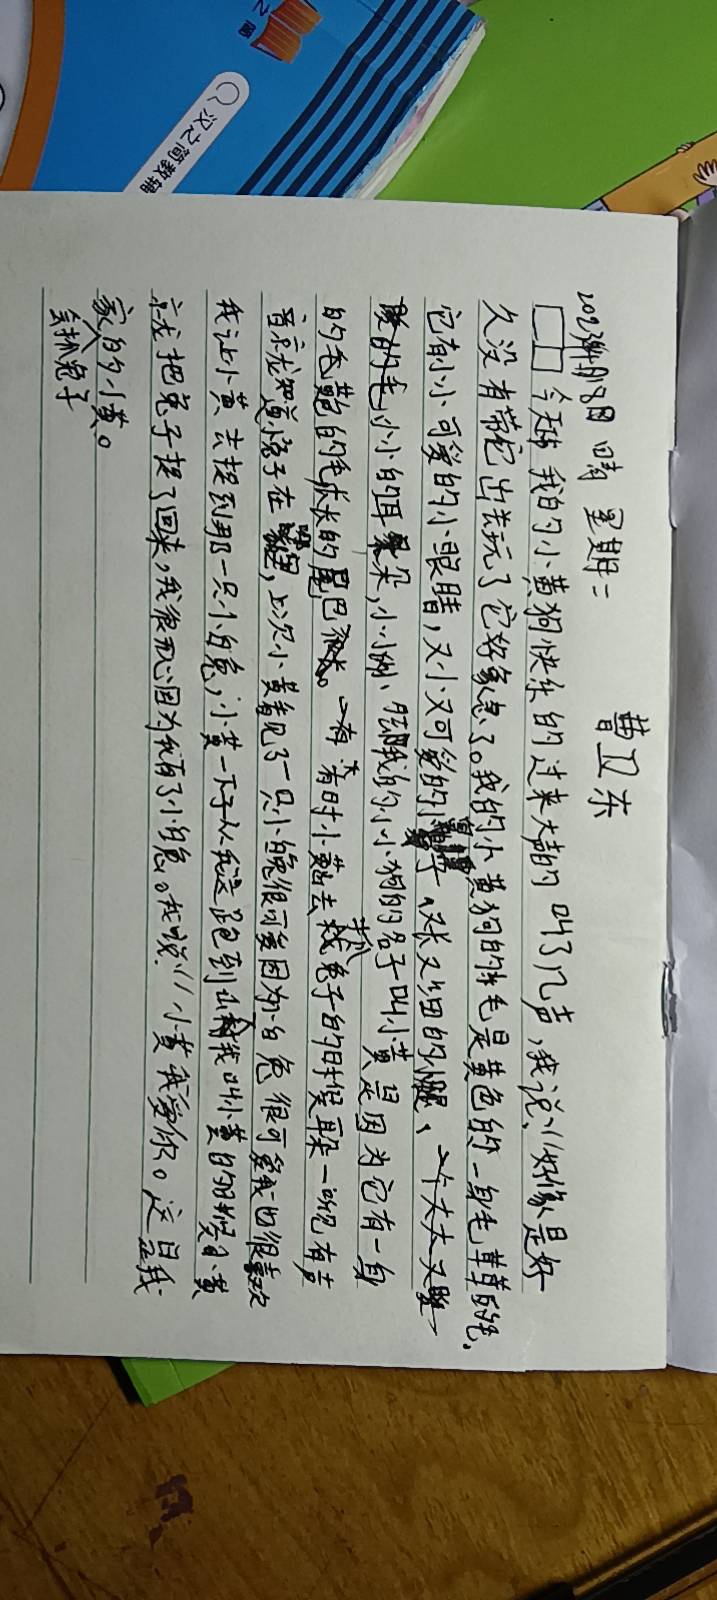 汉之简教辅
曹卫东
晴 星期二
今天 我的小黄狗快乐的过来大声的叫了几声，我说、"好像是好
久没有带它出去玩了它好像急了。我的小黄狗的毛是黄色的一身毛茸茸的毛，
它有小小可爱的小眼睛，又小又可爱的小鼻子，又长又细的小腿、
小小的耳朵，小小的、我的小小狗的名子叫小黄是因为它有一身
的黄色的毛长长的尾巴 有时小黄出去找兔子的时候耳朵一听有声
音就知道兔子在，上次小黄看见了一只小白兔很可爱因为白色很可爱我也很喜欢
我让小黄去捉到那一只小白兔，小黄一下子从我这跑到 我叫小黄的时候小黄
就把兔子捉了回来，我很开心因为我有了小白兔。我说："小黄我爱你。这是我
家会抓兔子的小黄。